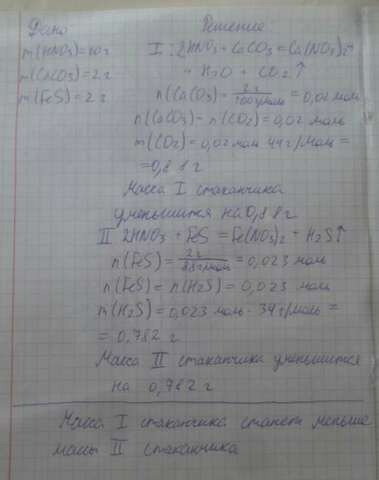 Дано: Решение:
m(HNO3)=10 г I : 2HNO3 + CaCO3 = Ca(NO3)2+
m(CaCO3)=2 г + H2O + CO2↑
m(FeS)=2 г n(CaCO3)= 2г/100г/моль = 0,02 моль
n(CaCO3)= n(CO2)=0,02 моль
m(CO2)=0,02 моль·44 г/моль =
=0,88 г
Масса I стаканчика
уменьшится на 0,88 г
II 2HNO3 + FeS = Fe(NO3)2 + H2S↑
n(FeS)= 2г/88г/моль = 0,023 моль
n(FeS)= n(H2S)= 0,023 моль
m(H2S)=0,023 моль · 34 г/моль =
= 0,782 г
Масса II стаканчика уменьшится
на 0,782 г
Масса I стаканчика станет меньше
массы II стаканчика